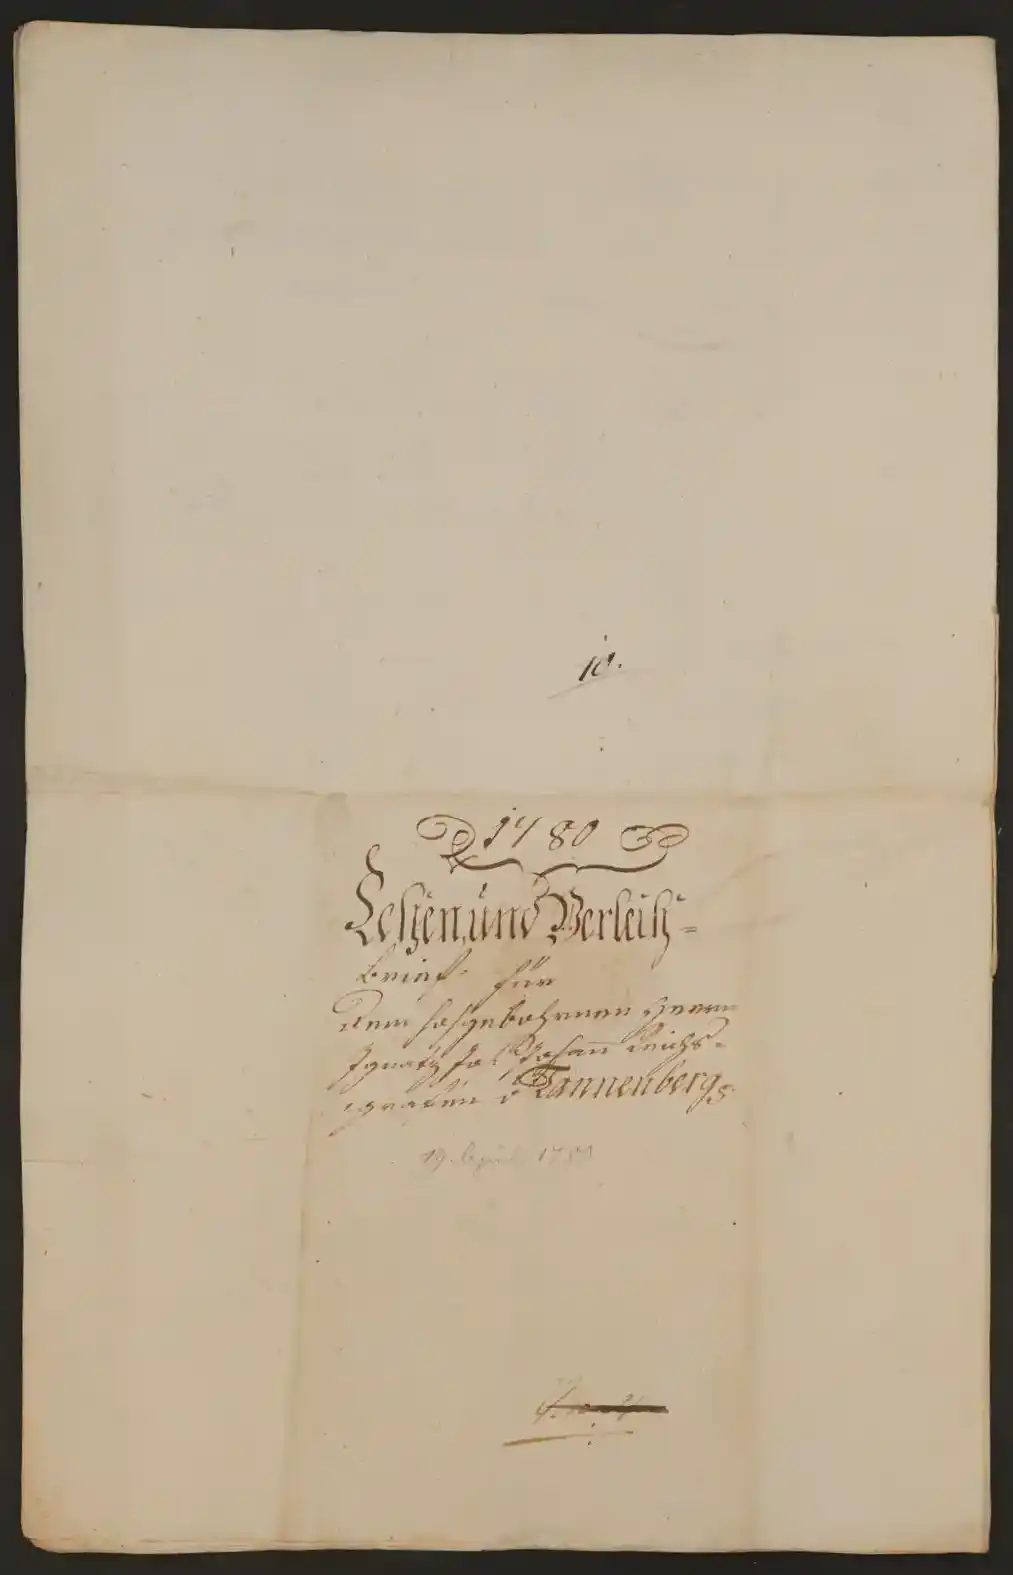 10.
1780
Lehen und Verleich=
brief für
dem hochgebohrnen Herrn
Ignatz Jos Johann Reichs=
grafen v Tannenberg
19. April 1780